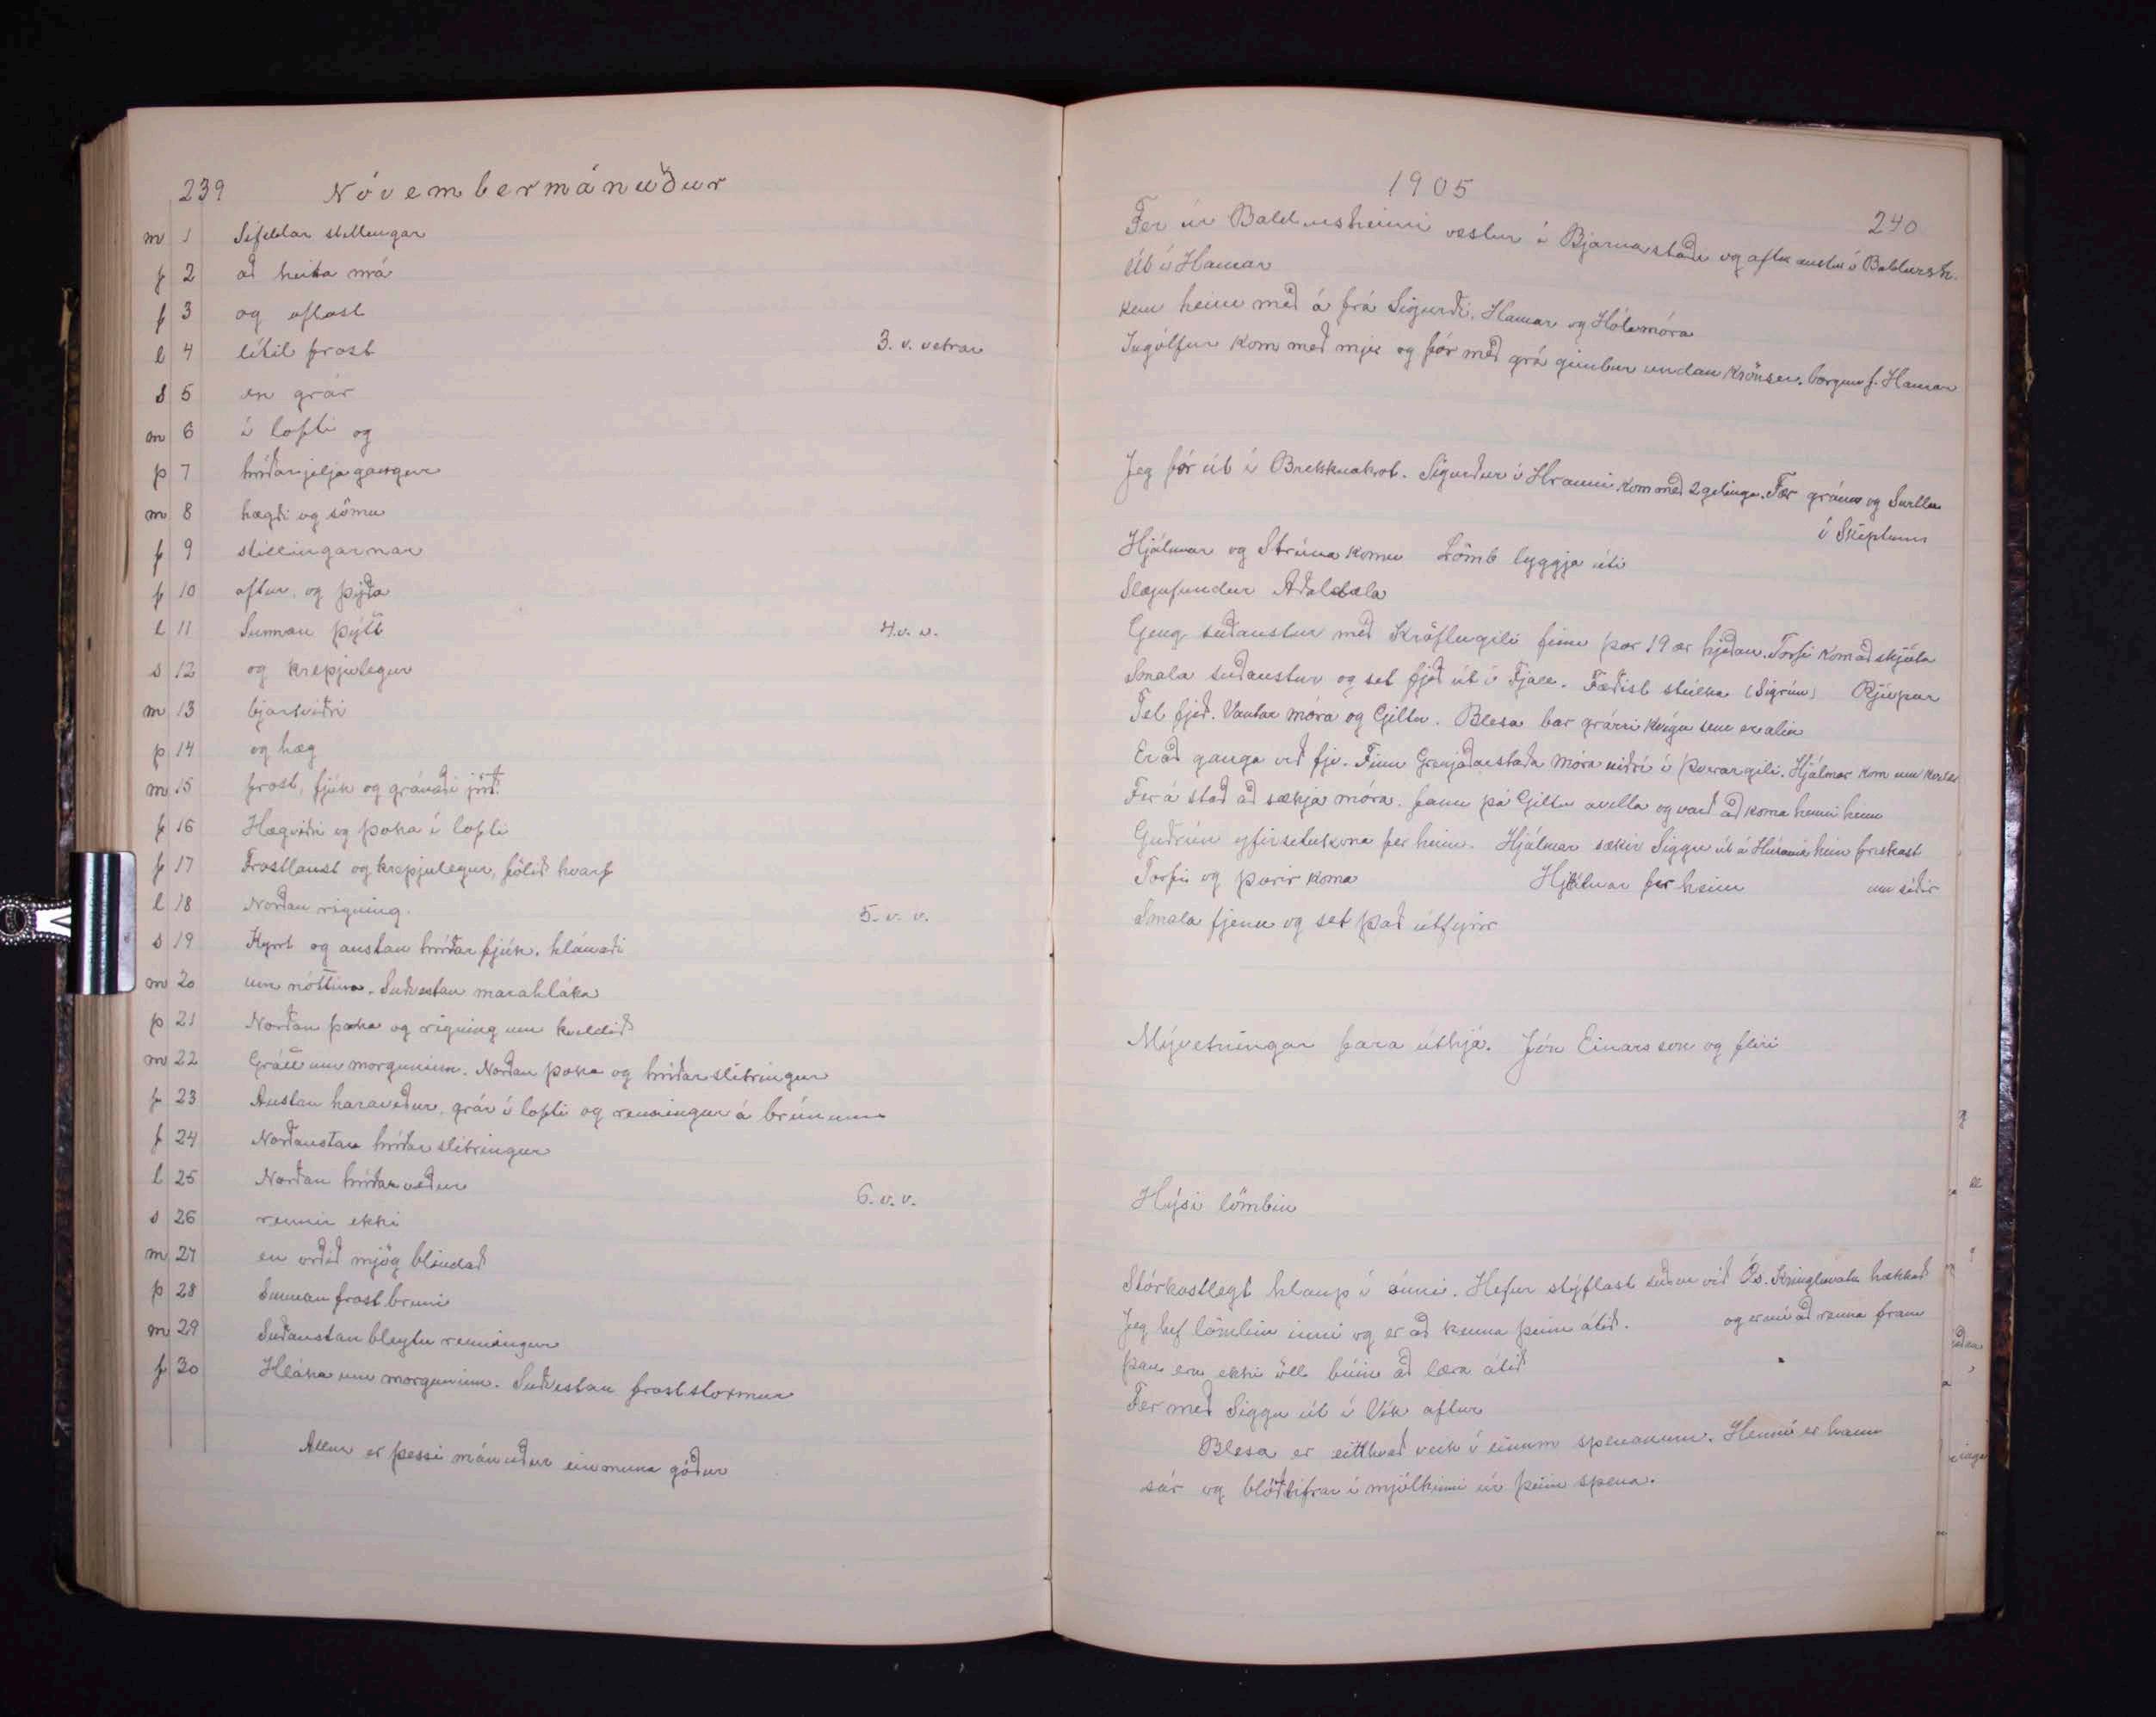 239 Nóvembermánuður
m 1 Sífeldar stillingar
f 2 að heita má
f 3 og oftast
l 4 lítil frost 3. v. vetrar
s 5 en grár
m 6 í lofti og
þ 7 hríðarjeljagangur
m 8 hægði og sömu
f 9 stillingarnar
f 10 aftur, og þýða
l 11 Sunnan þýtt 4. v. v.
s 12 og krepjulegur
m 13 bjartviðri
þ 14 og hæg
m 15 frost, fjúk og gránaði jörð
f 16 Hægviðri og þoka í lofti
f 17 Frostlaust og krepjulegur, fölið hvarf
l 18 Norðan rigning. 5. v. v.
s 19 Kyrt og austan hríðar fjúk, hlánaði
m 20 um nóttina. Suðvestan marahláka
þ 21 Norðan þoka og rigning um kveldið
m 22 Grátt um morguninn. Norðan þoka og hríðarslitringur
f 23 Austan haraveður, grár í lofti og renningur á brúnum
f 24 Norðaustan hríðar slitringur
l 25 Norðan hríðarveður 6. v. v.
s 26 rennir ekki
m 27 en orðið mjög blindað
þ 28 Sunnan frost bruni
m 29 Suðaustan bleytu renningur
f 30 Hláka um morguninn. Suðvestan froststormur
Allur er þessi mánuður einmuna góður
1905
240
Fer úr Baldursheimi vestur í Bjarnastaði og aftur austur í Baldursh.
Út í Hamar
kem heim með á frá Sigurði, Hamar og Hólsmóra
Ingólfur kom með mjer og fór með grá gimbur undan Krönsu. borgun f. Hamar
Jeg fór út í Brekknakot. Sigurður í Hrauni kom með 2 gelinga. Fær gráum og Surtlu
í Skiptum
Hjálmar og Strúna komu Lömb lyggja úti
Slægufundur Aðaldæla
Geng suðaustur með Kröflugili finn þar 19 ær hjeðan. Torfi kom að skjóta
Smala suðaustur og set fjeð út í Fjall. Fæðist stúlka (Sigrún) Rjúpur
Tel fjeð. Vantar móra og Giltu. Blesa bar grárri kvígu sem er alin
Er að ganga við fje. Finn Grenjaðarstaða Móra niðri í Þverárgili. Hjálmar kom um kveld
Fer á stað að sækja móra. fann þá Giltu avelta og varð að koma henni heim
Guðrún yfirsetukona fer heim. Hjálmar sækir Siggu út á Húsavík
Torfi og Þórir koma Hjálmar fer heim um síðir
Smala fjenu og set það útfyrir
Mývetningar fara úthjá. Jón Einarsson og fleiri
Hýsi lömbin
Stórkostlegt hlaup í ánni. Hefur stýflast suður við Ós. Kringluvatn hækkað
Jeg hef lömbin inni og er að kenna þeim átið. og er nú að renna fram
þau eru ekki öll búin að læra átið
Fer með Siggu út í Vík aftur
Blesa er eitthvað veik í einum spenanum. Henni er hann
sár og blóðtifrar í mjólkinni úr þeim spena.